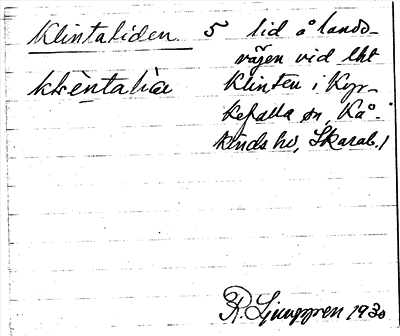 Klintaliden 5 lid å lands-
vägen vid lht
klèntalia Klinten i Kyr-
kefalla sn, Kå-
kinds hd, Skarab. l
R. Ljunggren 1930